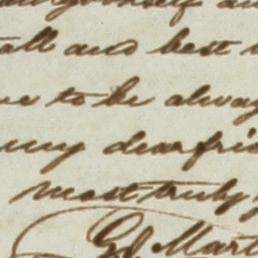 yourself an
all and best
to be alway
my dear frie
most truly y
Mart